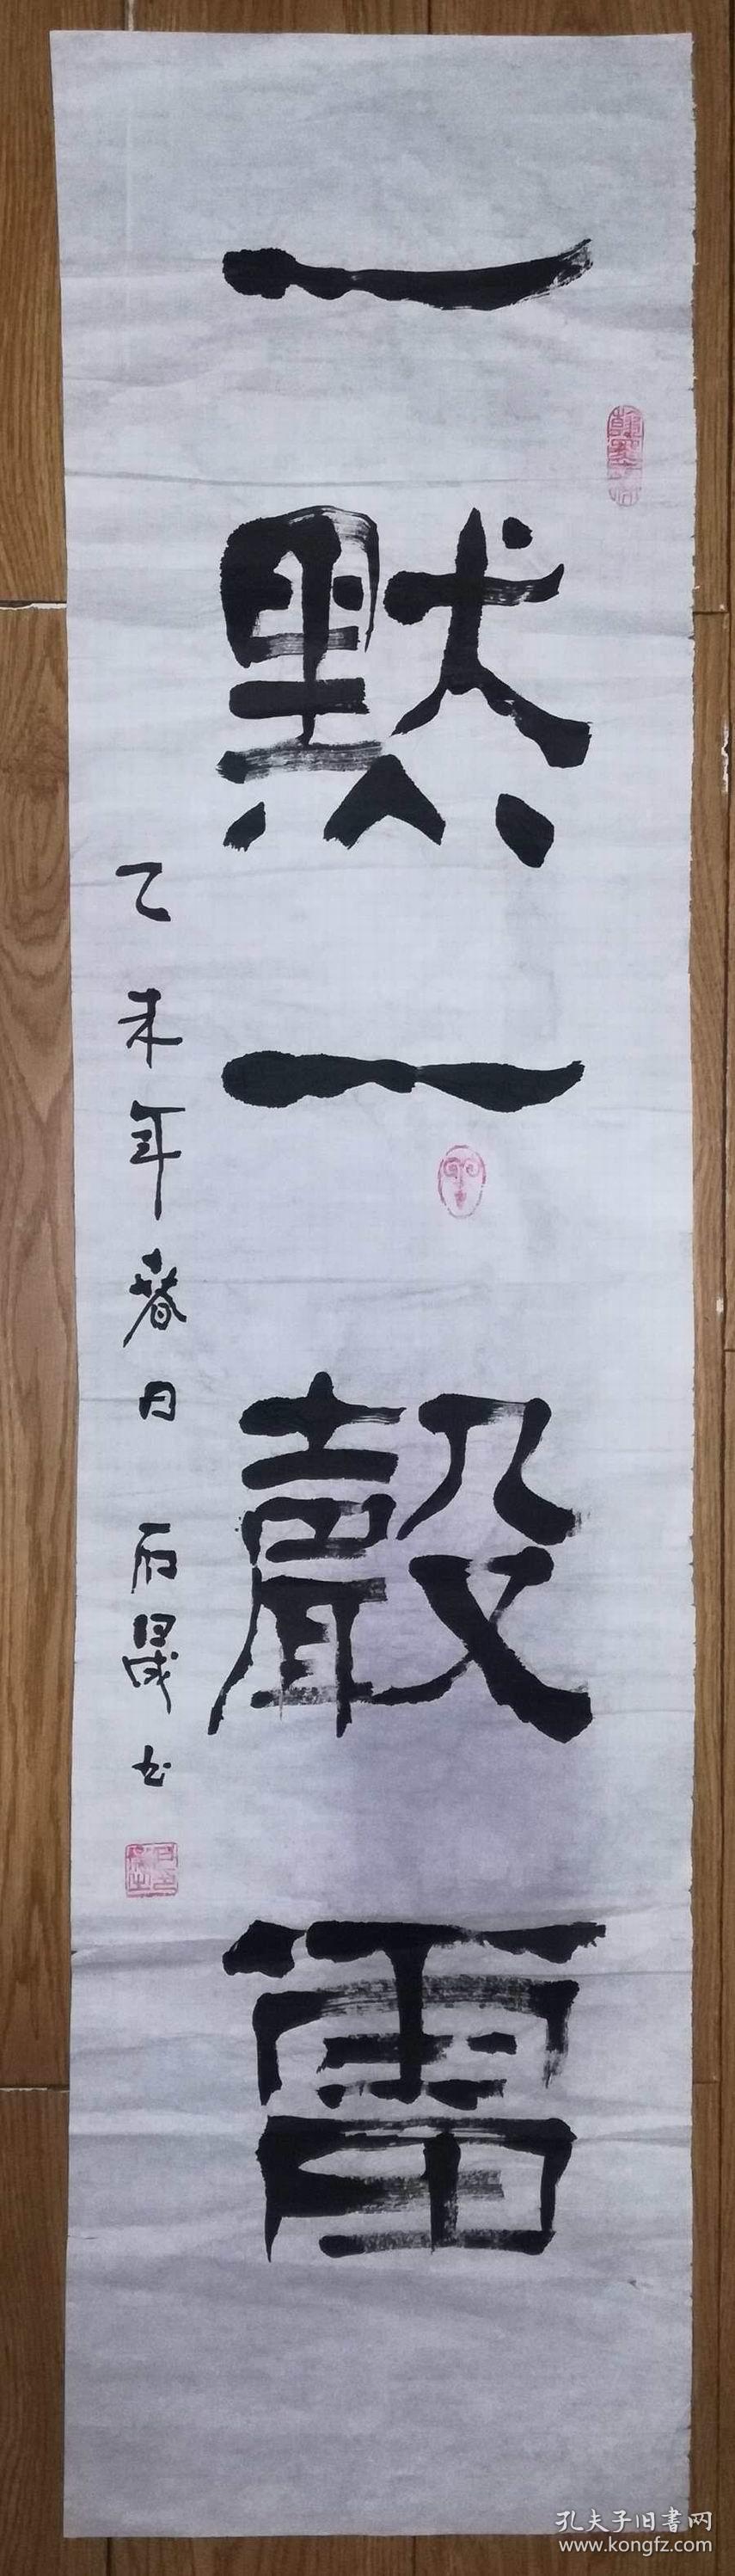 一默一聲雷
乙未年春日 石晟书
孔夫子旧書网
www.kongfz.com